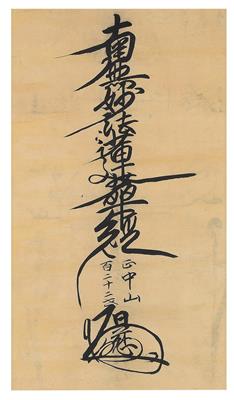 南無妙法蓮華経
正中山
百二十二
日